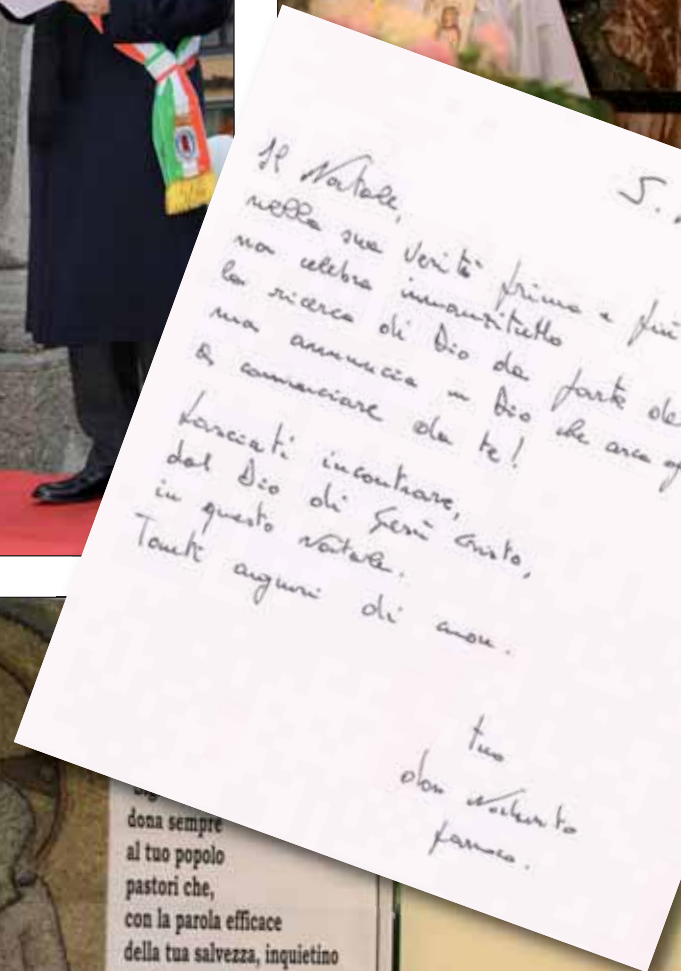 S.
Il Natale,
nella sua verità prima e più
non celebra innanzitutto
la ricerca di Dio da parte
ma annuncia un Dio che cerca
a cominciare da te!
Lasciati incontrare,
dal Dio di Gesù Cristo,
in questo Natale.
Tanti auguri di cuore.
tuo
don Norberto
parroco.
dona sempre
al tuo popolo
pastori che,
con la parola efficace
della tua salvezza, inquietino